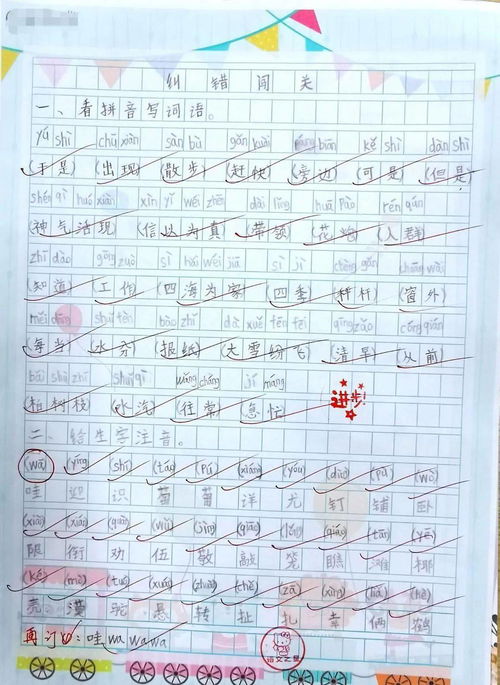 纠错闯关
一、看拼音写词语。
yú shì chū xiàn sàn bù gǎn kuài páng biān kě shì dàn shì
(于是)(出现)(散步)(赶快)(旁边)(可是)(但是)
shén qì huó xiàn xìn yǐ wéi zhēn dài lǐng huā pào rén qún
(神气活现)(信以为真)(带领)(花炮)(人群)
zhī dào gōng zuò sì hǎi wéi jiā sì jì chèng gǎn chuāng wài
(知道)(工作)(四海为家)(四季)(秤杆)(窗外)
měi dāng shuǐ fèn bào zhǐ dà xuě fēn fēi qīng zǎo cóng qián
(每当)(水分)(报纸)(大雪纷飞)(清早)(从前)
bǎi shù zhī shuǐ qì wǎng cháng jí máng
(柏树枝)(水汽)(往常)(急忙)
进步!
二、给生字注音。
(wā)(yíng)(shí)(táo)(pú)(xiáng)(yóu)(dīng)(pù)(wò)
哇 迎 识 萄 葡 洋 尤 钉 铺 卧
(xiàn)(jiē)(quàn)(wǔ)(jìng)(qiāo)(lóng)(qiáo)(tān)(yē)
限 街 劝 伍 敬 敲 笼 瞧 滩 椰
(ké)(mò)(tuó)(xuán)(zhuàn)(chě)(zā)(xìng)(liǎ)(hè)
壳 漠 驼 悬 转 扯 扎 幸 俩 鹤
再订心:哇 wa wa wa
语文之星